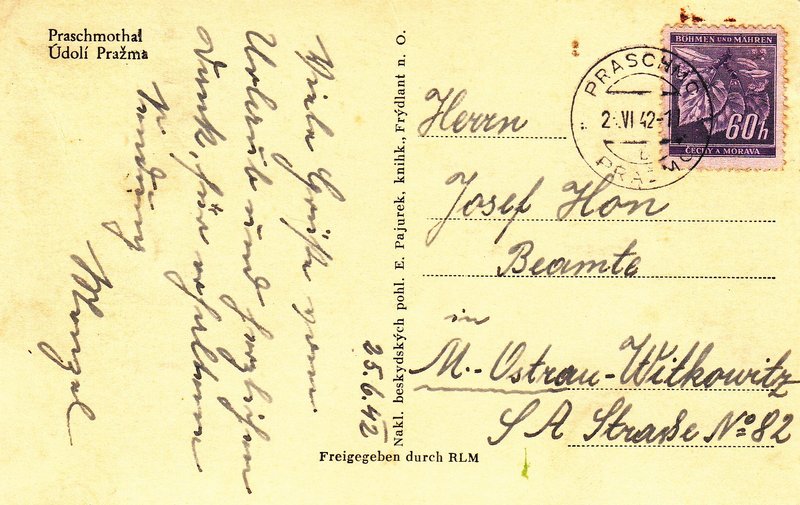 Praschmothal
Údolí Pražma
Viele Grüße vom
Urlaub und herzlichen
Dank, für erhaltene
Sendung
25.6.42
Nakl. beskydských pohl. E. Pajurek, knihk., Frýdlant n. O.
Freigegeben durch RLM
BÖHMEN UND MÄHREN
60h
ČECHY A MORAVA
PRASCHMO
VI 42
PRAŽMO
Herrn
Josef Hon
Beamte
in
M.-Ostrau-Witkowitz
SA Straße No 82